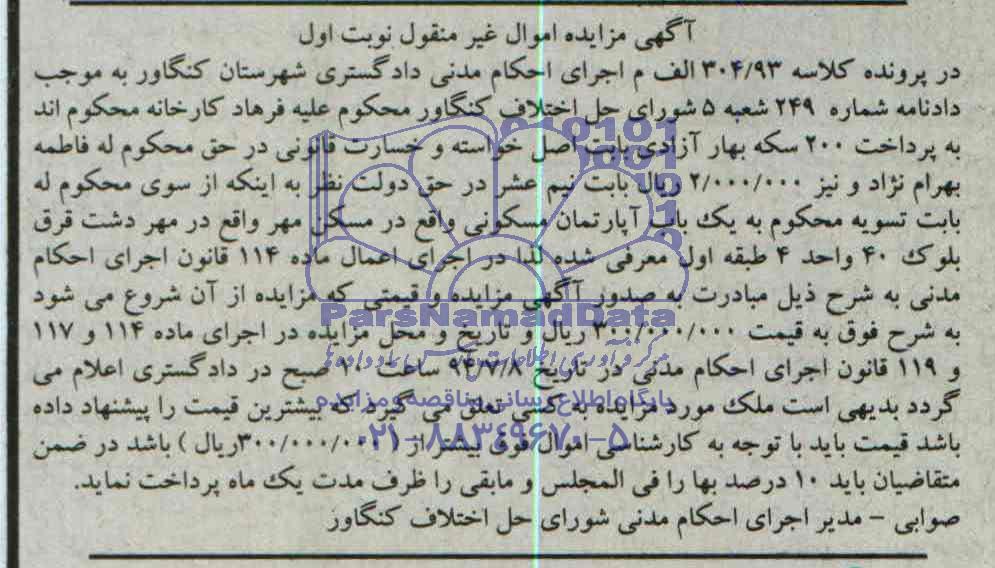 آگهی مزایده اموال غیر منقول نوبت اول
در پرونده کلاسه ۳۰۴/۹۳ الف م اجرای احکام مدنی دادگستری شهرستان کنگاور به موجب
دادنامه شماره ۲۴۹ شعبه ۵ شورای حل اختلاف کنگاور محکوم علیه فرهاد کارخانه محکوم اند
به پرداخت ۲۰۰ سکه بهار آزادی بابت اصل خواسته و خسارت قانونی در حق محکوم له فاطمه
بهرام نژاد و نیز ۲/۰۰۰/۰۰۰ ریال بابت نیم عشر در حق دولت نظر به اینکه از سوی محکوم له
بابت تسویه محکوم به یک باب آپارتمان مسکونی واقع در مسکن مهر واقع در مهر دشت قرق
بلوک ۴۰ واحد ۴ طبقه اول معرفی شده لذا در اجرای اعمال ماده ۱۱۴ قانون اجرای احکام
مدنی به شرح ذیل مبادرت به صدور آگهی مزایده و قیمتی که مزایده از آن شروع می شود
به شرح فوق به قیمت ۳۰۰/۰۰۰/۰۰۰ ریال و تاریخ و محل مزایده در اجرای ماده ۱۱۴ و ۱۱۷
و ۱۱۹ قانون اجرای احکام مدنی در تاریخ ۹۴/۷/۸ ساعت ۱۰ صبح در دادگستری اعلام می
گردد بدیهی است ملک مورد مزایده به کسی تعلق می گیرد که بیشترین قیمت را پیشنهاد داده
باشد قیمت باید با توجه به کارشناسی اموال فوق بیشتر از (۳۰۰/۰۰۰/۰۰۰ریال ) باشد در ضمن
متقاضیان باید ۱۰ درصد بها را فی المجلس و مابقی را ظرف مدت یک ماه پرداخت نماید.
صوابی – مدیر اجرای احکام مدنی شورای حل اختلاف کنگاور
ParsNamadData
پایگاه اطلاع رسانی مناقصه و مزایده
۰۲۱-۸۸۳۴۹۶۷۰-۵